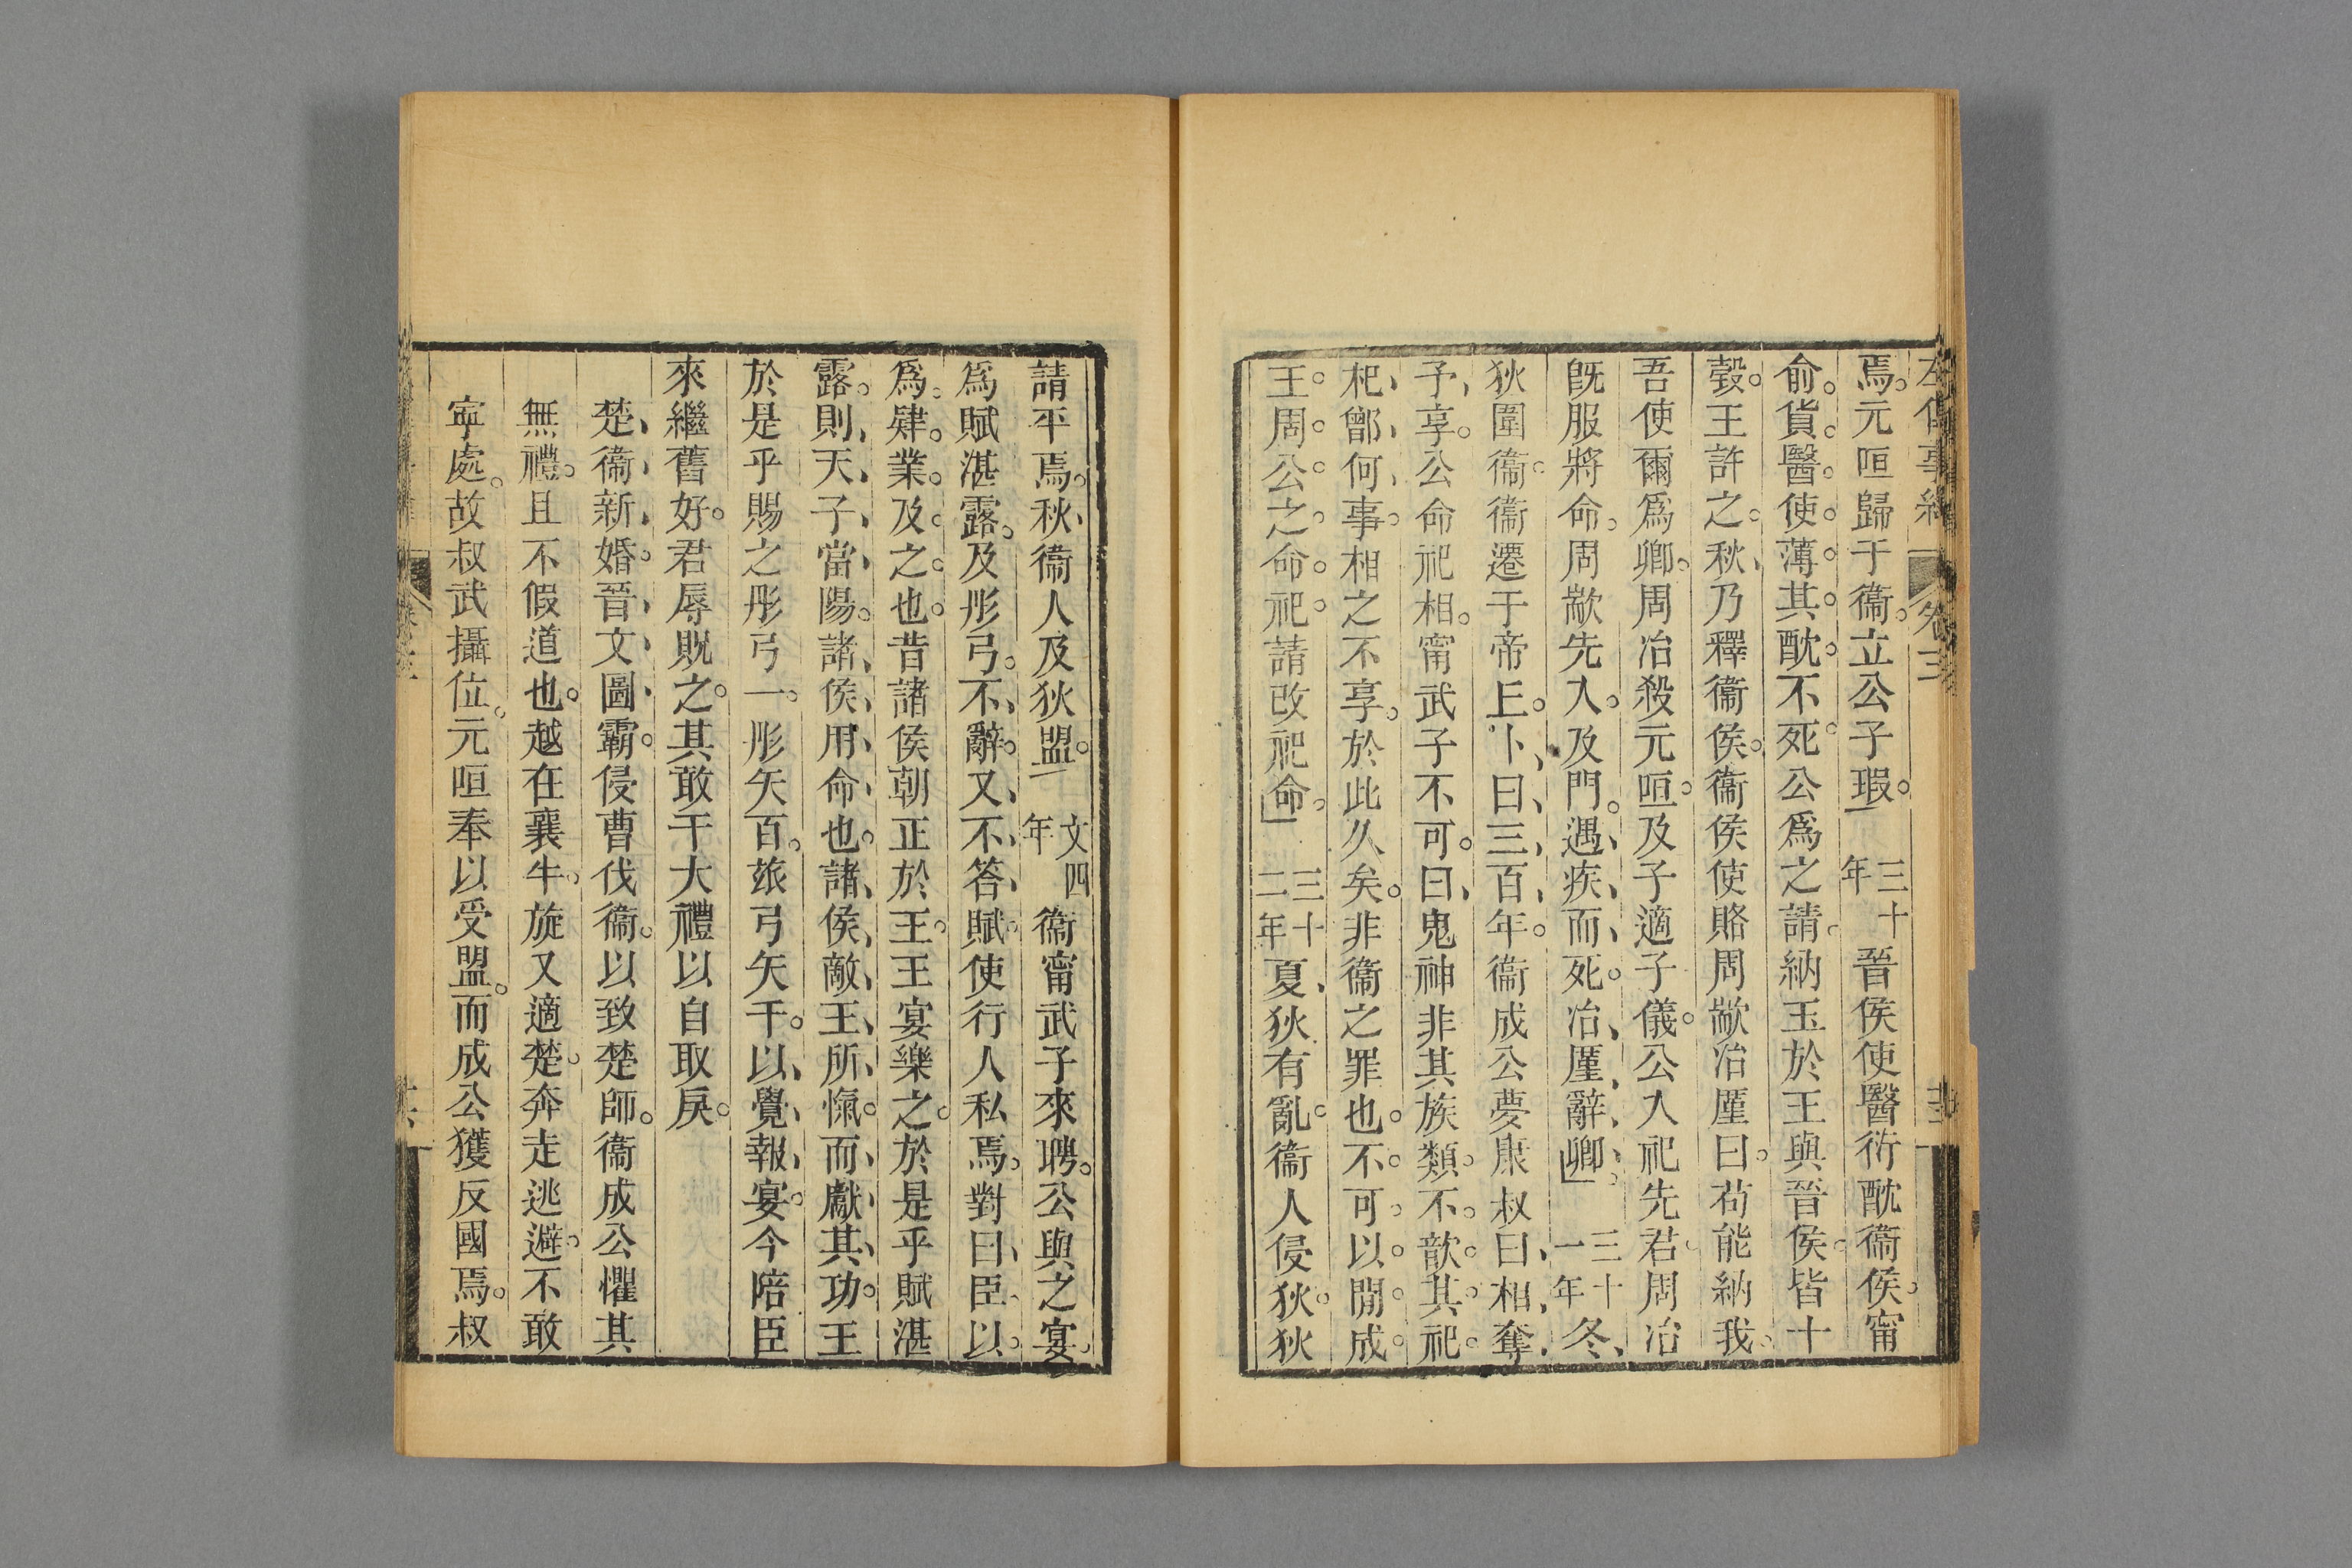 左傳事緯 卷三
焉元咺歸于衞立公子瑕三十年晉侯使醫衍酖衞侯甯
俞貨醫使薄其酖不死公爲之請納玉於王與晉侯皆十
瑴王許之秋乃釋衞侯衞侯使賂周歂冶厪曰苟能納我
吾使爾爲卿周冶殺元咺及子適子儀公入祀先君周冶
旣服將命周歂先入及門遇疾而死冶厪辭卿三十一年冬
狄圍衞衞遷于帝丘卜曰三百年衞成公夢康叔曰相奪
予享公命祀相甯武子不可曰鬼神非其族類不歆其祀
杞鄫何事相之不享於此久矣非衞之罪也不可以閒成
王周公之命祀請改祀命三十二年夏狄有亂衞人侵狄狄
請平焉秋衞人及狄盟文四年衞甯武子來聘公與之宴
爲賦湛露及彤弓不辭又不答賦使行人私焉對曰臣以
爲肄業及之也昔諸侯朝正於王王宴樂之於是乎賦湛
露則天子當陽諸侯用命也諸侯敵王所愾而獻其功王
於是乎賜之彤弓一彤矢百玈弓矢千以覺報宴今陪臣
來繼舊好君辱貺之其敢干大禮以自取戾
楚衞新婚晉文圖霸侵曹伐衞以致楚師衞成公懼其
無禮且不假道也越在襄牛旋又適楚奔走逃避不敢
寧處故叔武攝位元咺奉以受盟而成公獲反國焉叔